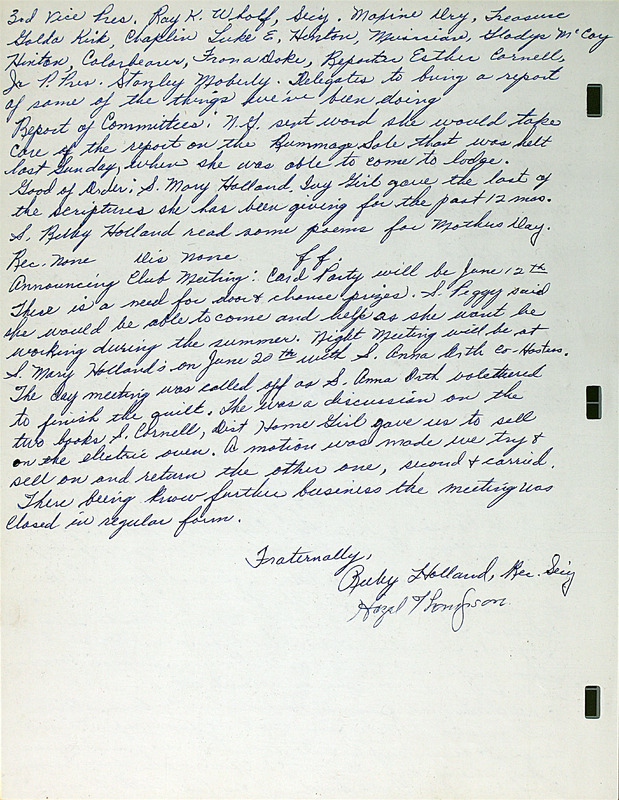 3rd Vice Pres. Ray K. Wholf, Secy. Maxine Dry, Treasure
Golda Kirk, Chaplin Luke E. Hinton, Musician, Gladys McCoy
Hinton, Colorbearer, Frona Doke, Reporter Esther Cornell,
Jr. P. Pres. Stanley Moberly. Delegates to bring a report
of some of the things we've been doing
Report of Committies: N.G. sent word she would take
care of the report on the Rummage Sale that was held
last Sunday, when she was able to come to lodge.
Good of Order: S. Mary Holland, Ivy Girl gave the last of
the scriptures she has been giving for the past 12 mos.
S. Ruby Holland read some poems for Mothers Day.
Rec. none Dis none f f.
Announcing Club Meeting: Card Party will be June 12th
There is a need for door & chance prizes. S. Peggy said
she would be able to come and help as she wont be
working during the summer. Night Meeting will be at
S. Mary Holland's on June 20th with S. Anna Orth co-Hostess.
The day meeting was called off as S. Anna Orth volettered
to finish the quilt. The was a discussion on the
two books S. Cornell, Dist Home Girl gave us to sell
on the electric oven. A motion was made we try &
sell on and return the other one, second & carried.
There being know further business the meeting was
closed in regular form.
Fraternally,
Ruby Holland, Rec. Secy
Hazel Thompson.